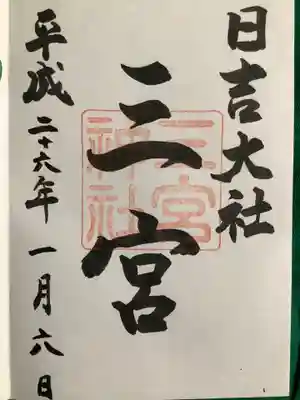 日吉大社
三宮
三宮神社
平成二十六年一月六日